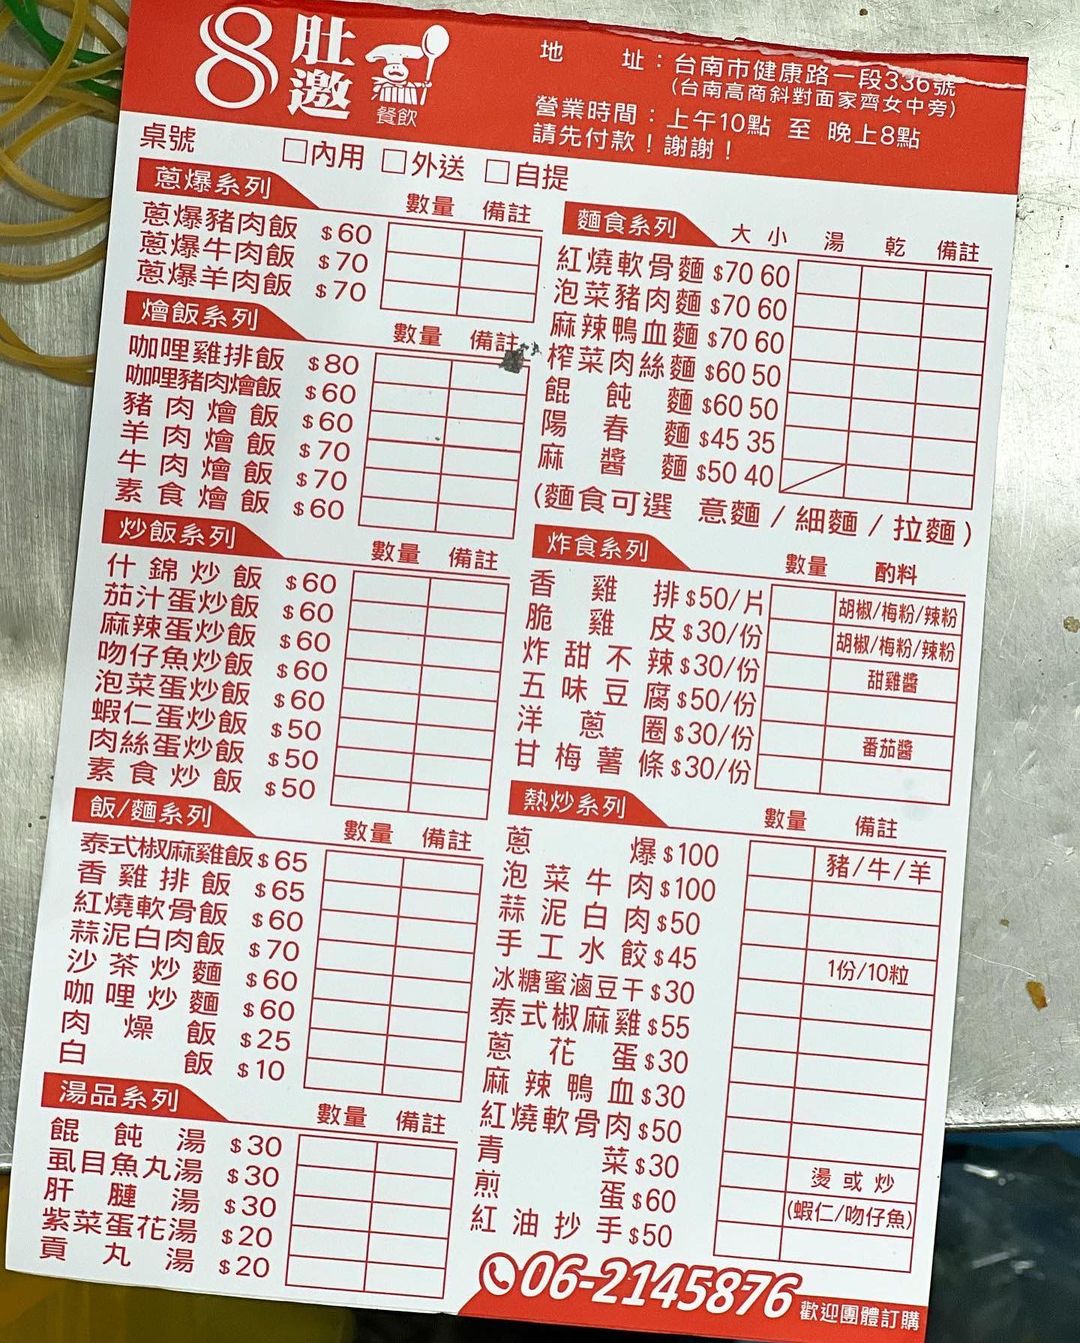 8
肚邀
餐飲
地 址：台南市健康路一段336號
(台南高商斜對面家齊女中旁)
營業時間：上午10點 至 晚上8點
請先付款！謝謝！
桌號 □內用 □外送 □自提
蔥爆系列 數量 備註
蔥爆豬肉飯 $60
蔥爆牛肉飯 $70
蔥爆羊肉飯 $70
燴飯系列 數量 備註
咖哩雞排飯 $80
咖哩豬肉燴飯 $60
豬肉燴飯 $60
羊肉燴飯 $70
牛肉燴飯 $70
素食燴飯 $60
炒飯系列 數量 備註
什錦炒飯 $60
茄汁蛋炒飯 $60
麻辣蛋炒飯 $60
吻仔魚炒飯 $60
泡菜蛋炒飯 $60
蝦仁蛋炒飯 $50
肉絲蛋炒飯 $50
素食炒飯 $50
飯/麵系列 數量 備註
泰式椒麻雞飯 $65
香雞排飯 $65
紅燒軟骨飯 $60
蒜泥白肉飯 $70
沙茶炒麵 $60
咖哩炒麵 $60
肉燥飯 $25
白飯 $10
湯品系列 數量 備註
餛飩湯 $30
虱目魚丸湯 $30
肝腱湯 $30
紫菜蛋花湯 $20
貢丸湯 $20
麵食系列 大 小 湯 乾 備註
紅燒軟骨麵 $70 60
泡菜豬肉麵 $70 60
麻辣鴨血麵 $70 60
榨菜肉絲麵 $60 50
餛飩麵 $60 50
陽春麵 $45 35
麻醬麵 $50 40
(麵食可選 意麵 / 細麵 / 拉麵)
炸食系列 數量 酌料
香雞排 $50/片 胡椒/梅粉/辣粉
脆雞皮 $30/份 胡椒/梅粉/辣粉
炸甜不辣 $30/份 甜雞醬
五味豆腐 $50/份
洋蔥圈 $30/份 番茄醬
甘梅薯條 $30/份
熱炒系列 數量 備註
蔥爆 $100 豬/牛/羊
泡菜牛肉 $100
蒜泥白肉 $50
手工水餃 $45 1份/10粒
冰糖蜜滷豆干 $30
泰式椒麻雞 $55
蔥花蛋 $30
麻辣鴨血 $30
紅燒軟骨肉 $50
青菜 $30 燙或炒
煎蛋 $60 (蝦仁/吻仔魚)
紅油抄手 $50
06-2145876 歡迎團體訂購